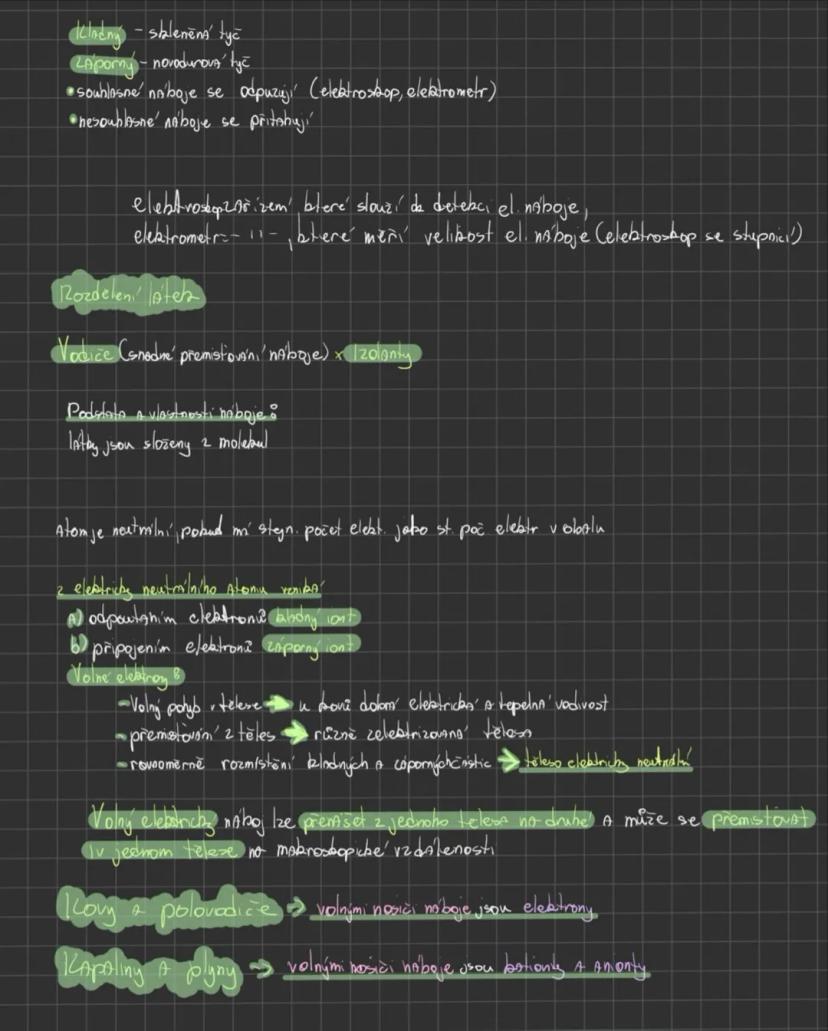 Kladný - skleněná tyč
záporný - novodurová tyč
• souhlasné náboje se odpuzují (elektroskop, elektrometr)
• nesouhlasné náboje se přitahují
elektroskop zařízení které slouží do detekci el. náboje,
elektrometr = - 11 - , které měří velikost el. náboje (elektroskop se stupnicí)
Rozdělení látek
Vodiče (snadné přemistování náboje) x Izolanty
Podstata a vlastnosti náboje:
látky jsou složeny z molekul
Atom je neutrální, pokud má stejn. počet elekt. jako st. poč elektr v obalu
z elektricky neutrálního atomu vzniká
a) odpoutáním elektronů kladný iont
b) připojením elektronů záporný iont
Volné elektrony:
- Volný pohyb v tělese → u kovů dobrá elektrická a tepelná vodivost
- přemistování z těles → různě zelektrizovaná tělesa
- rovnoměrné rozmístění kladných a záporných částic → těleso elektricky neutrální
Volný elektrický náboj lze přenášet z jednoho telesa na druhé a může se přemistovat
i v jednom tělese na makroskopické vzdálenosti
Kovy a polovodiče → volnými nosiči náboje jsou elektrony
Kapaliny a plyny → volnými nosiči náboje jsou kationty a anionty